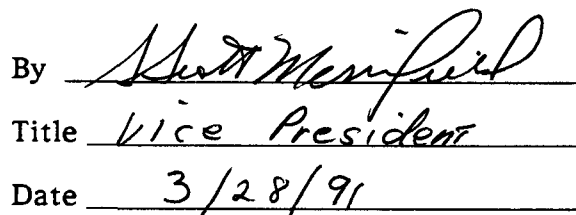 By Scott Merrifield
Title Vice President
Date 3/28/91